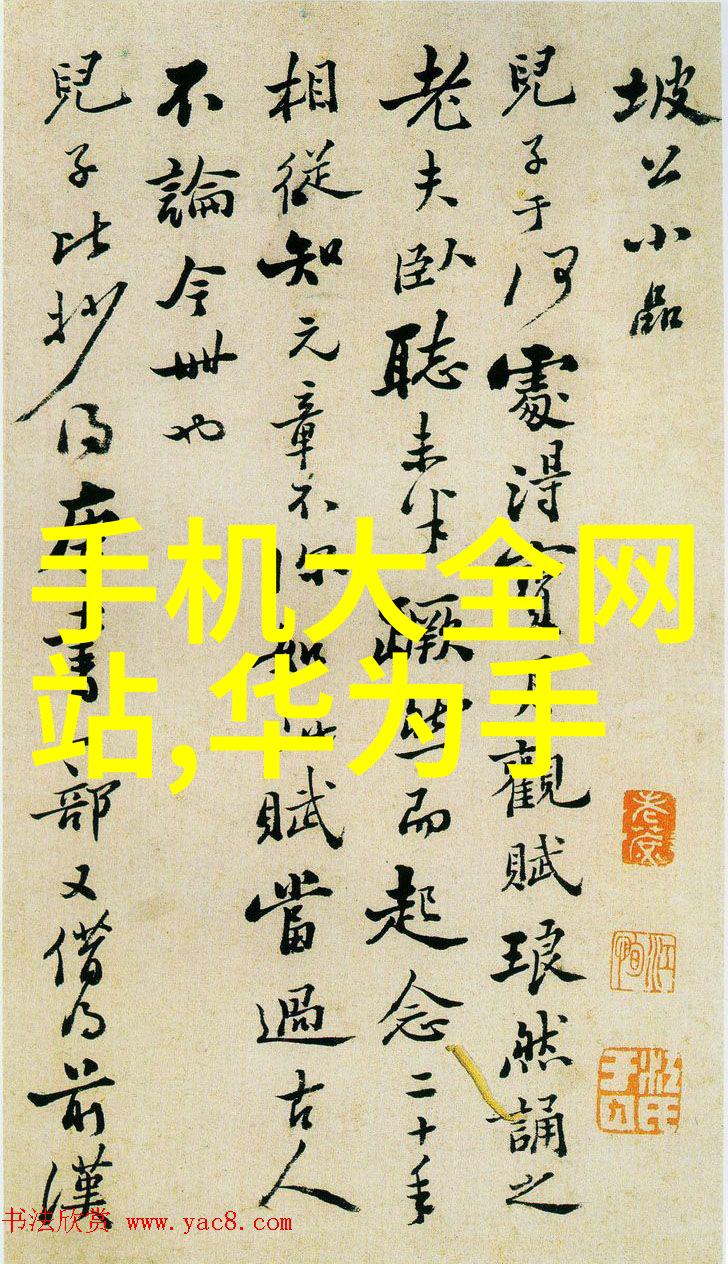 坡公小品
兒子于何處得寶月觀賦琅然誦之
老夫臥聽未半蹶然而起念二十年
相從知元章不賦當過古人
不論今世也
兒子比抄得唐書一部又借得前漢
手机大全网
站,华为手
书法欣赏 www.yac8.com